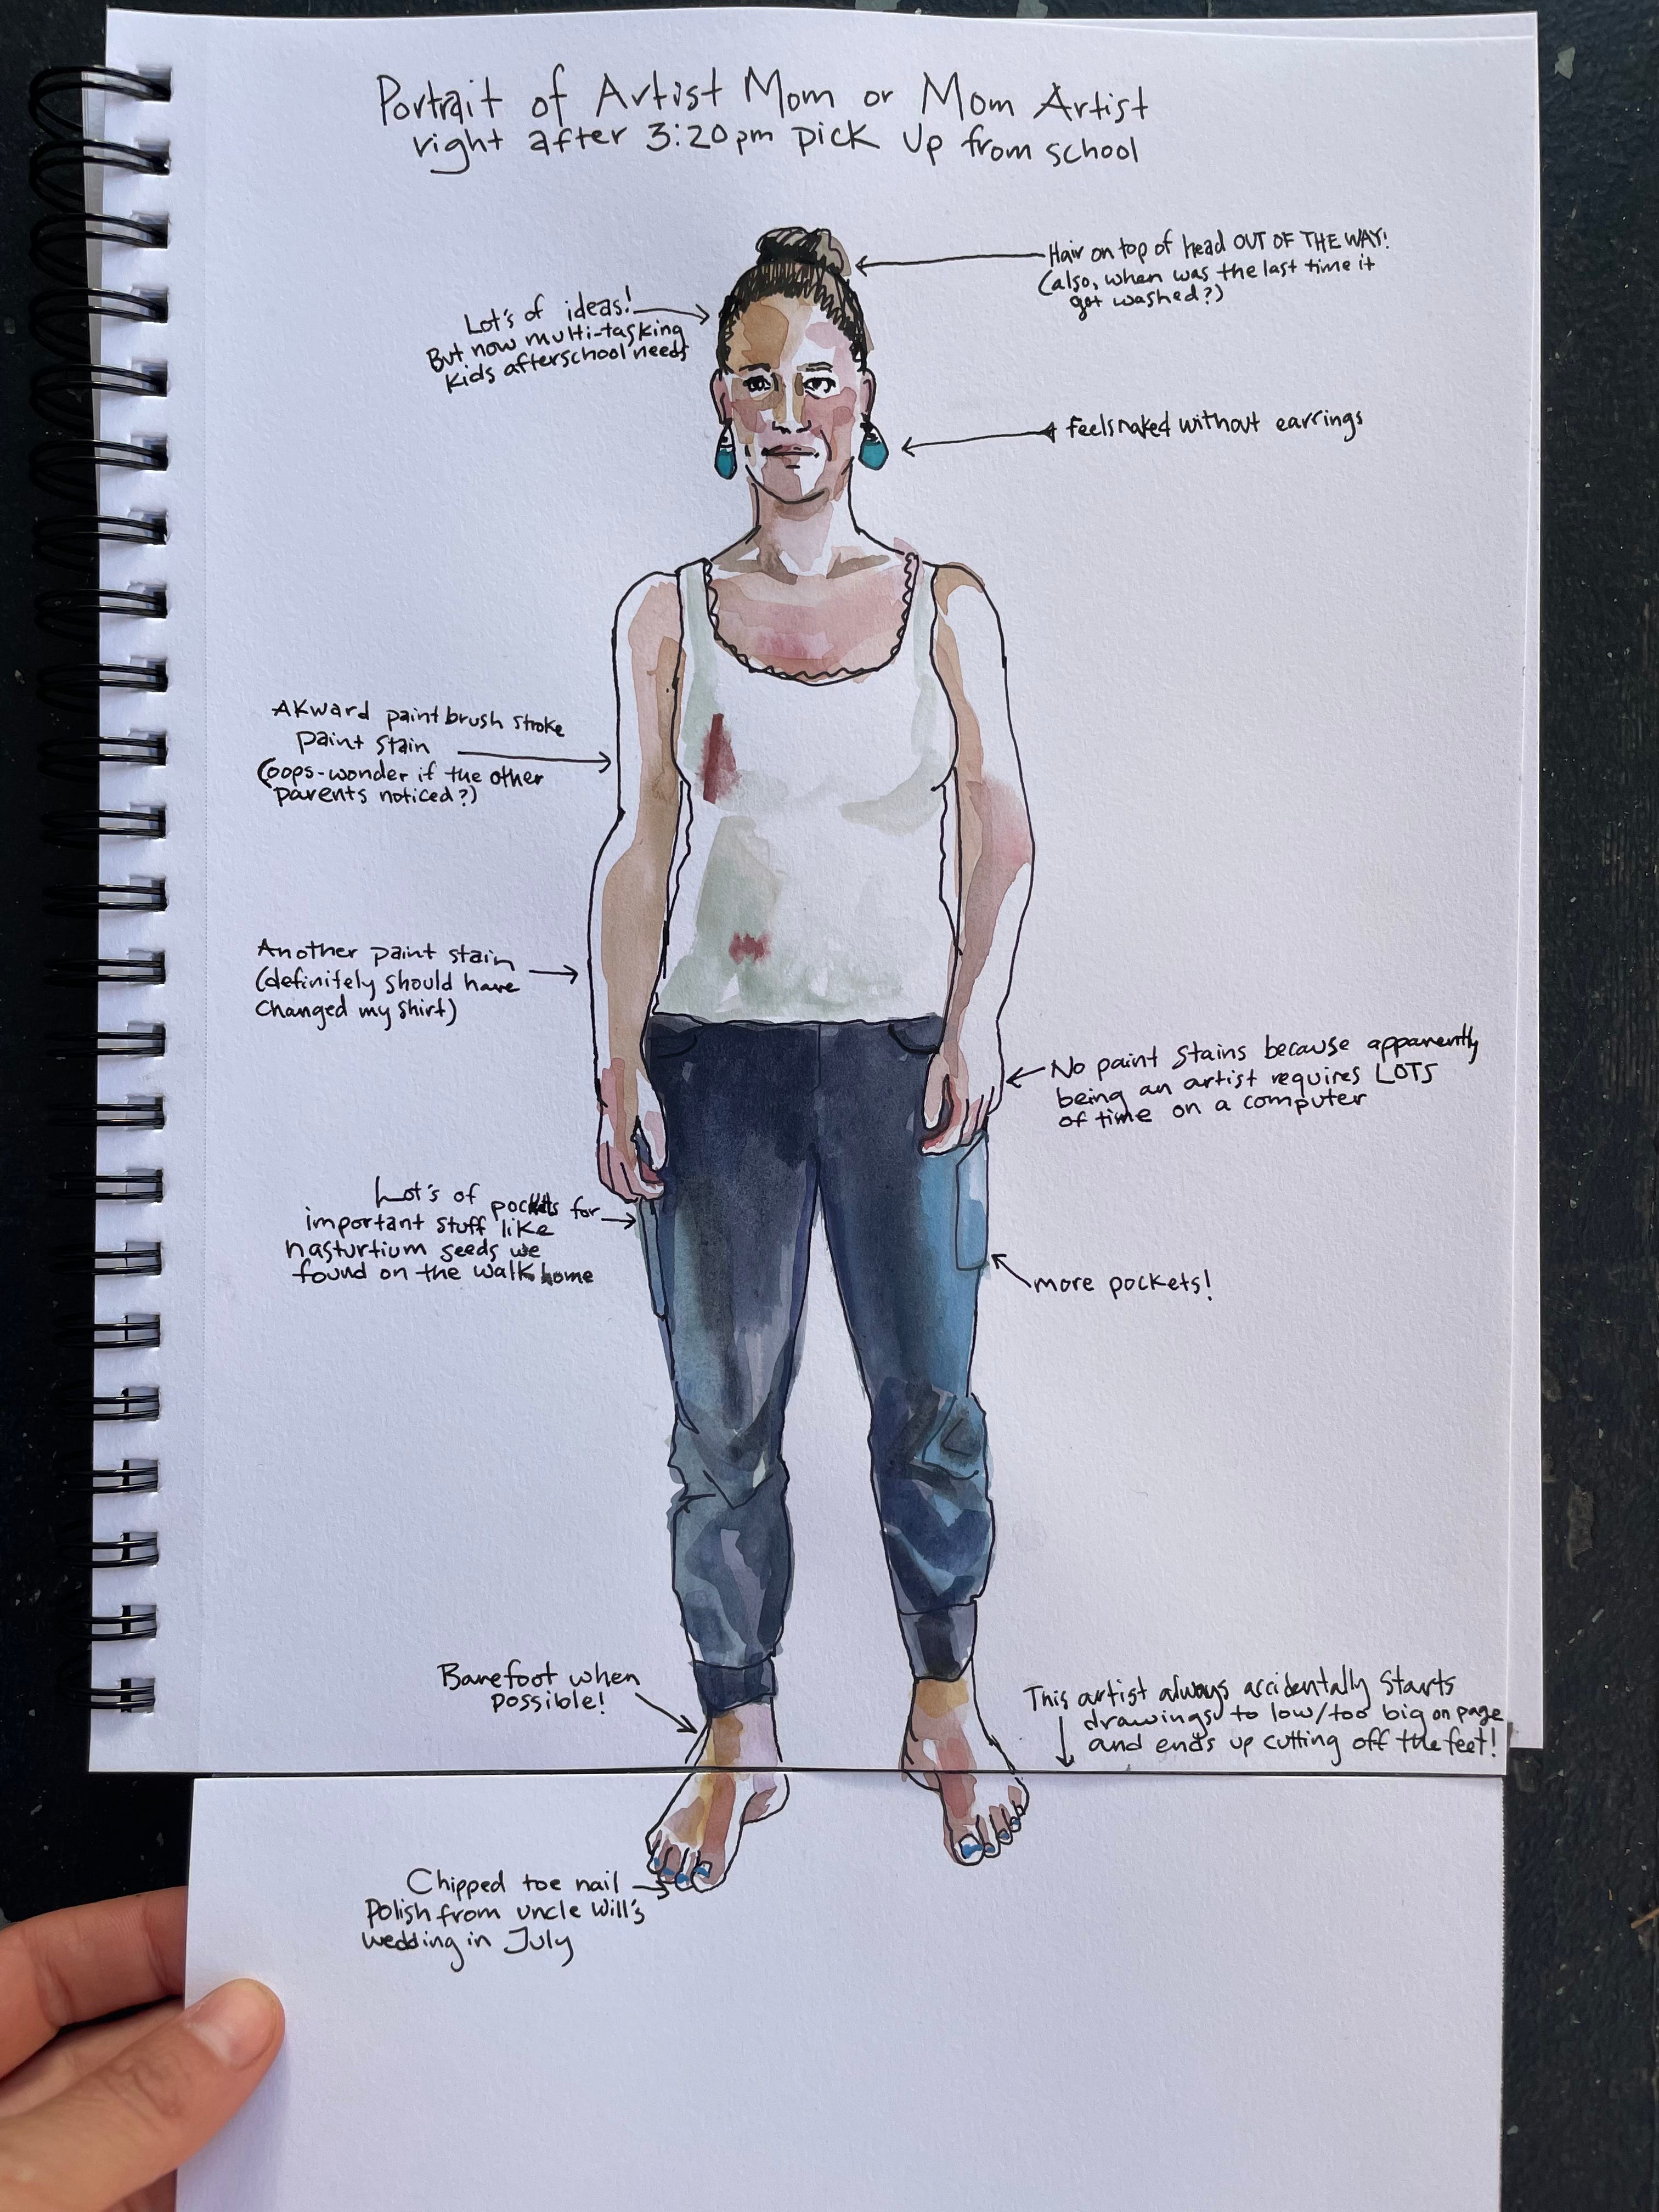 Portrait of Artist Mom or Mom Artist
right after 3:20pm pick up from school
Hair on top of head OUT OF THE WAY!
(also, when was the last time it
got washed?)
Lot's of ideas!
But now multi-tasking
kids afterschool needs
feels naked without earrings
AKward paintbrush stroke
paint stain
(oops-wonder if the other
parents noticed?)
Another paint stain
(definitely should have
changed my shirt)
No paint stains because apparently
being an artist requires LOTS
of time on a computer
Lot's of pockets for
important stuff like
nasturtium seeds we
found on the walk home
more pockets!
Barefoot when
possible!
This artist always accidentally starts
drawings to low/too big on page
and ends up cutting off the feet!
Chipped toe nail
Polish from uncle Will's
wedding in July